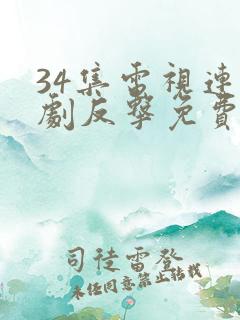 34集電視連
劇反擊免費
司徒雷登
未经同意禁止转载